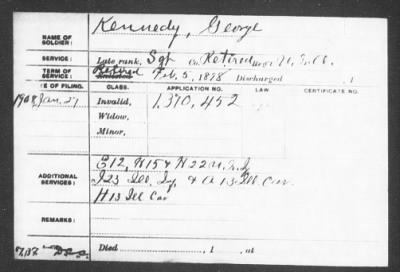 Kennedy, George
NAME OF SOLDIER:
SERVICE: Late rank, Sgt Co. Retired Reg't U.S.
TERM OF SERVICE: Retired Feb. 5, 1898 Discharged , 1
DATE OF FILING. CLASS. APPLICATION NO. LAW CERTIFICATE NO.
1908 Jan. 27 Invalid, 1,370,452
Widow,
Minor,
E 12, H 15 & H 22 U.S. Inf
ADDITIONAL SERVICES: I 23 Ill. Inf. & A 13 Ill. Cav.
H 13 Ill Cav
REMARKS:
Died , 1 , at